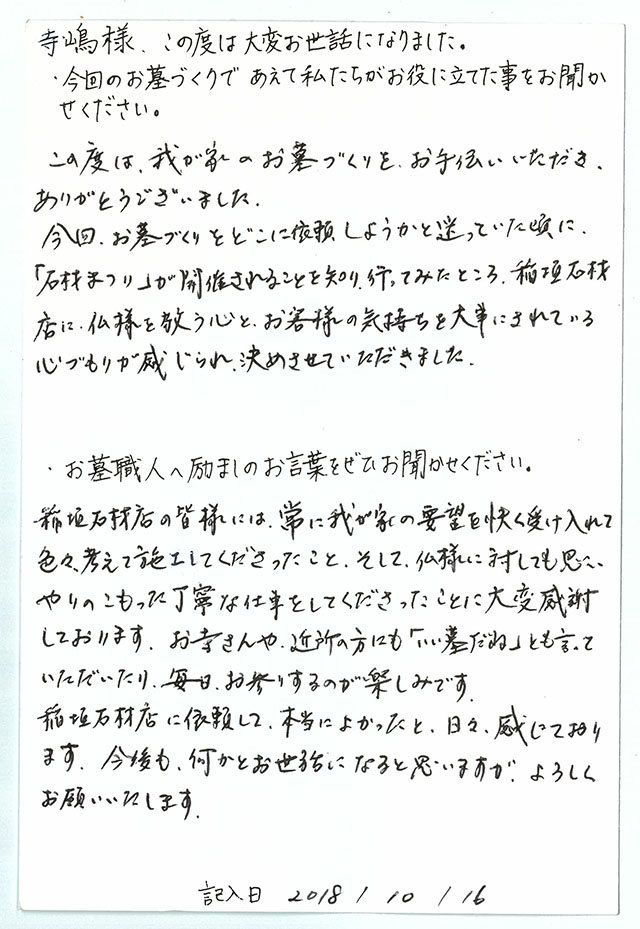 寺嶋様、この度は大変お世話になりました。
・今回のお墓づくりで あえて私たちがお役に立てた事をお聞か
せください。
この度は、我が家のお墓づくりを、お手伝いいただき、
ありがとうございました。
今回、お墓づくりをどこに依頼しようかと迷っていた頃に、
「石材まつり」が開催されることを知り、行ってみたところ、稲垣石材
店に、仏様を敬う心と、お客様の気持ちを大事にされている
心づもりが感じられ、決めさせていただきました。
・お墓職人へ励ましのお言葉をぜひお聞かせください。
稲垣石材店の皆様には、常に我が家の要望を快く受け入れて
色々、考えて施工してくださったこと、そして、仏様に対しても思い
やりのこもった丁寧な仕事をしてくださったことに大変感謝
しております。お寺さんや、近所の方にも「いい墓だね」とも言って
いただいたり、毎日、お参りするのが楽しみです。
稲垣石材店に依頼して、本当によかったと、日々、感じており
ます。今後も、何かとお世話になると思いますが、よろしく
お願いいたします。
記入日 2018 / 10 / 16